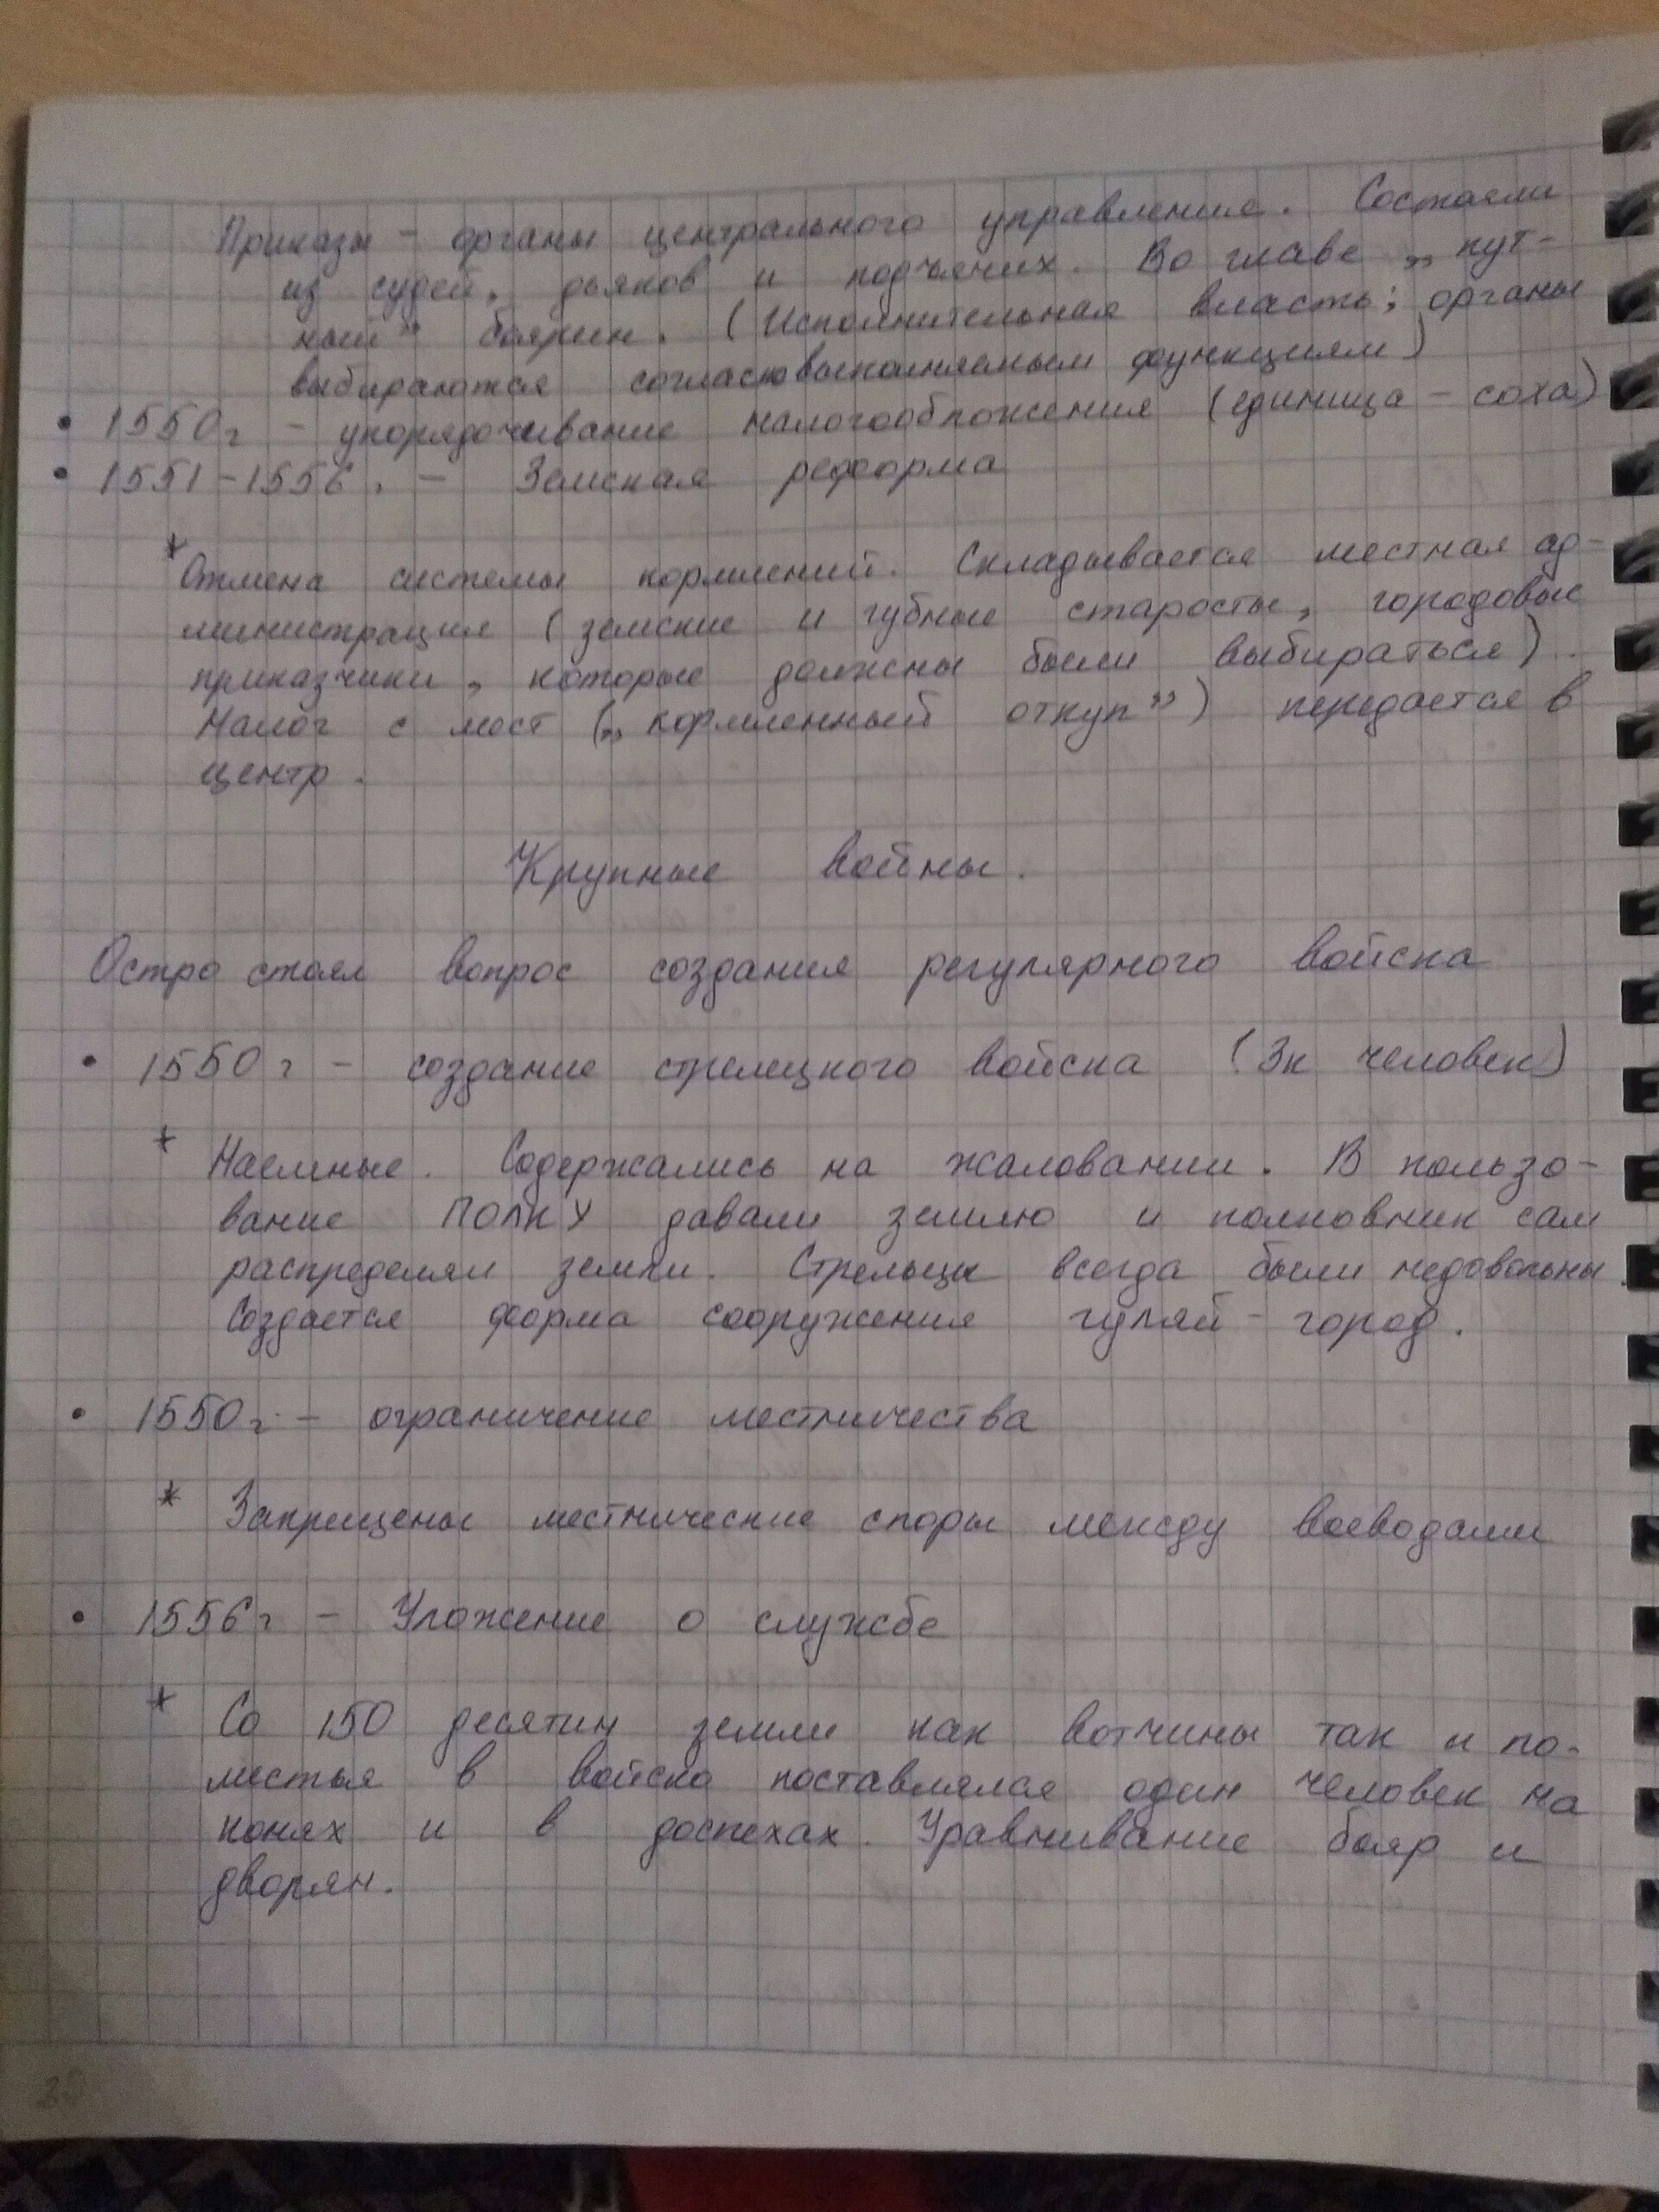 Приказы - органы центрального управления. Состояли
из судей, дьяков и подъячих. Во главе „пут-
ный" боярин. (Исполнительная власть; органы
выбираются согласно выполняемым функциям)
• 1550г - упорядочивание налогообложения (единица - соха)
• 1551-1556. - Земская реформа
* Отмена системы кормлений. Складывается местная ад-
министрация (земские и губные старосты, городовые
приказчики, которые должны были выбираться).
Налог с мест („кормленный откуп") передается в
центр.
Крупные войны.
Остро стоял вопрос создания регулярного войска
• 1550г - создание стрелецкого войска (3к человек)
* Наемные. Содержались на жаловании. В пользо-
вание ПОЛКУ давали землю и полковник сам
распределял земли. Стрельцы всегда были недовольны.
Создается форма сооружения гуляй-город.
• 1550г. - ограничение местничества
* Запрещены местнические споры между воеводами
• 1556г - Уложение о службе
* Со 150 десятин земли как вотчины так и по-
местья в войско поставлялся один человек на
конях и в доспехах. Уравнивание бояр и
дворян.